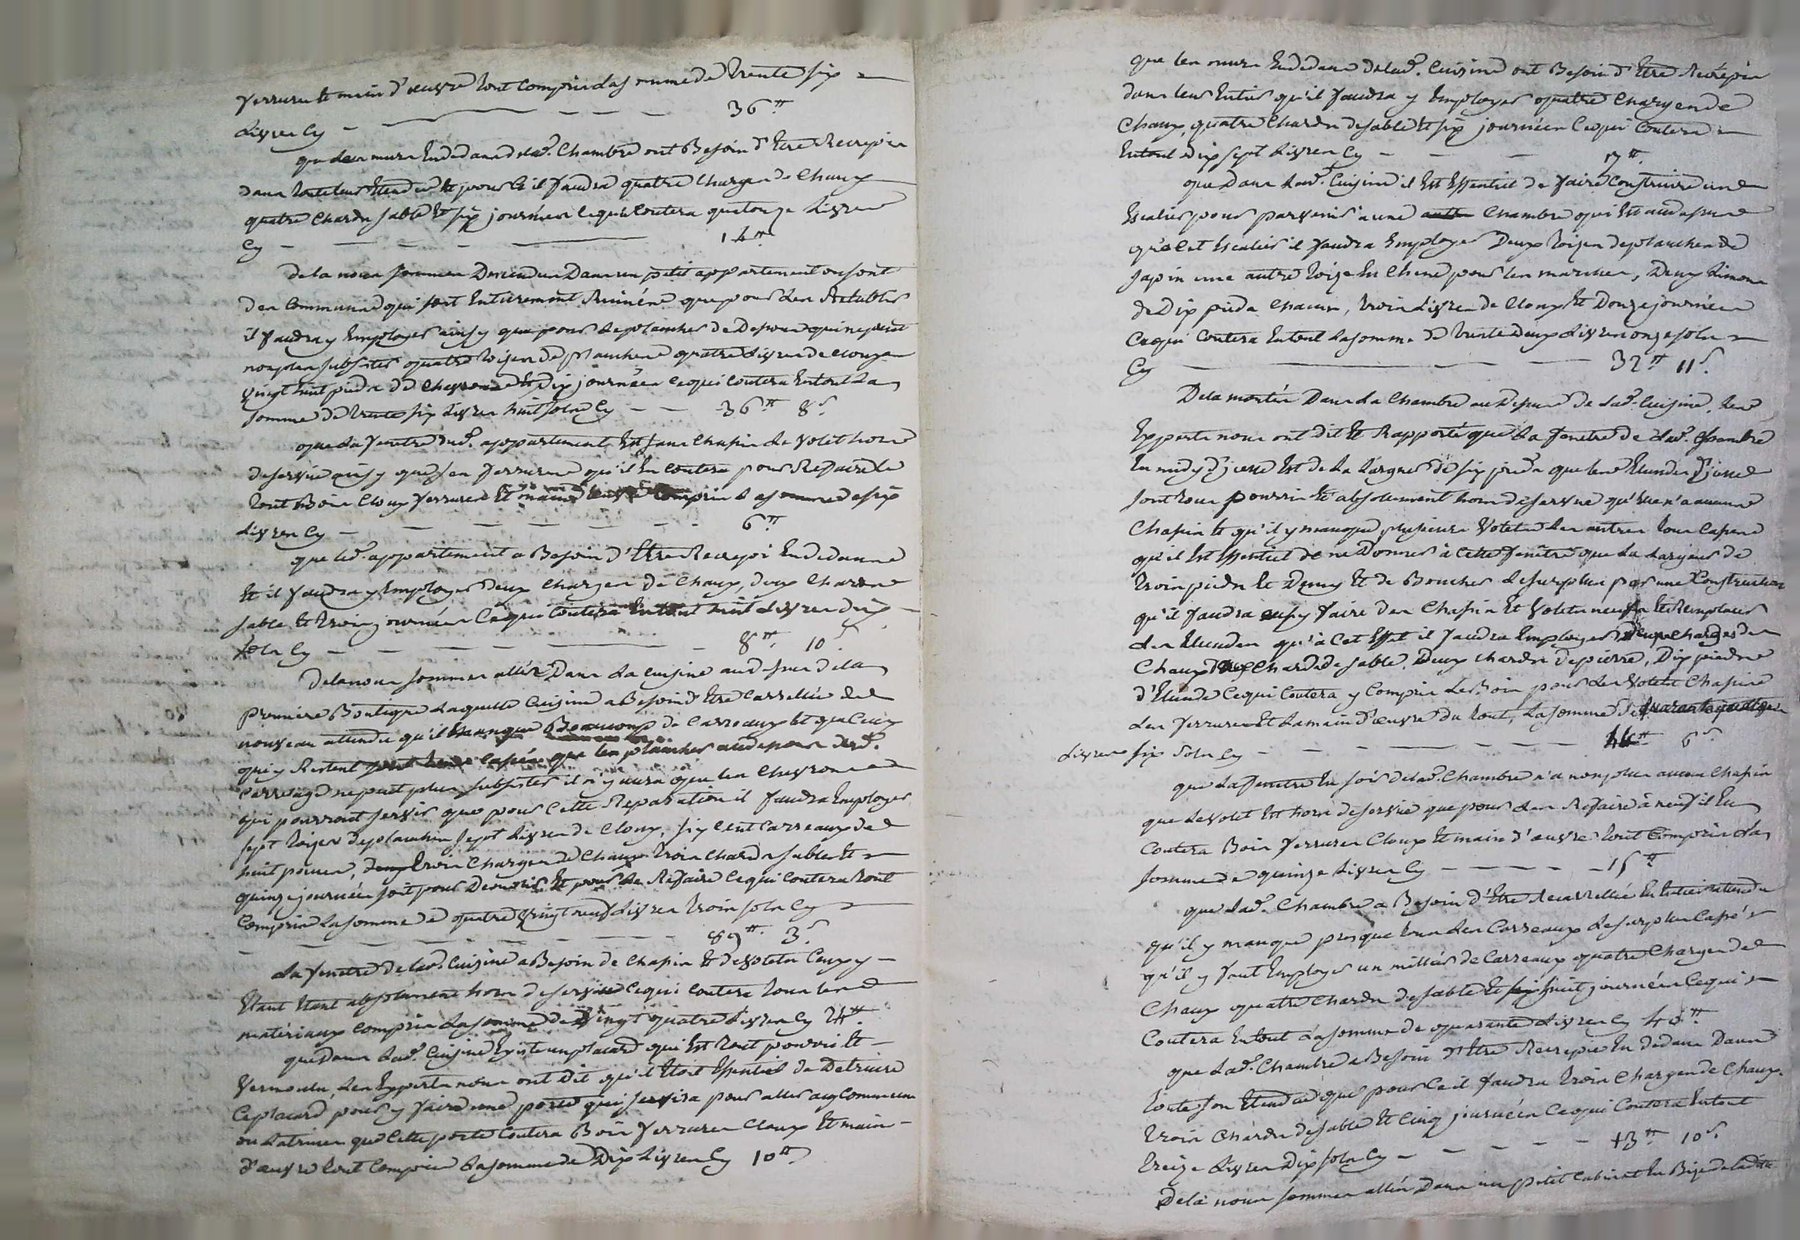 ferrures et main d'œuvre tout compris la somme de trente six
Livres Cy - 36 ₶
que les murs En dedans de lad. Chambre ont Besoin d'Etre Recrepis
dans toute leur Etendue et pour ce il faudra quatre Charges de Chaux
quatre Chards sable et six journées ce qui Coutera quatorze Livres
Cy - 14 ₶
de la nous sommes Descendus Dans un petit appartement ou sont
des Communs qui sont Entierement Ruinés que pour les Retablir
il faudra y Employer ainsy que pour le plancher de Dessus qui ne peut
non plus subsister quatre toises de planches quatre Livres de Clouxs
vingt huit pieds de Chevrons et dix journées ce qui Coutera En tout La
somme de trente six Livres huit sols Cy - 36 ₶ 8 s.
que la fenetre dud. appartement Est sans Chasis le Volet hors
de service ainsy que ses ferrures qu'il En Coutera pour Refaire Le
tout Bois Cloux ferrures Et main d'œuvre Compris La somme de six
Livres Cy - 6 ₶
que led. appartement a Besoin d'Etre Recrepi En dedans
Et il faudra y Employer deux Charges de Chaux, deux Chards
sable Et trois journées Ce qui Coutera En tout huit Livres dix
sols Cy - 8 ₶ 10 s
De la nous sommes allés Dans La Cuisine au dessus de la
premiere Boutique Laquelle Cuisine a Besoin d'Etre Carrellée de
nouveau attendu qu'il manque Beaucoup de Carreaux Et que Ceux
qui y Restent sont tous Cassés que les planches au dessous dud.
Carrelage ne peut plus subsister il n'y aura que les Chevrons
qui pourront servir que pour Cette Reparation il faudra Employer
sept toises de planches sept Livres de Cloux, six Cent Carreaux de
huit pouces, trois Charges de Chaux trois Chards sable Et
quinze journées soit pour Demolir Et pour Le Refaire Ce qui Coutera tout
Compris La somme de quatre vingt neuf Livres trois sols Cy
- 89 ₶ 3 s
La fenetre de lad. Cuisine a Besoin de Chasis Et de Volets Ceux y
Etant Etant absolument hors de service Ce qui Coutera tous les
materiaux Compris La somme de Vingt quatre Livres Cy 24 ₶
que Dans Lad. Cuisine Existe un placard qui Est tout pourri Et
Vermoulu, Les Experts nous ont Dit qu'il Etoit Essentiel de Detruire
Ce placard pour y faire une porte qui servira pour aller aux Communs
ou Latrines que Cette porte Coutera Bois ferrures Cloux Et main
d'œuvre tout Compris La somme de Dix Livres Cy 10 ₶
que les murs En dedans de lad. Cuisine ont Besoin d'Etre Recrepis
dans leur Entier qu'il faudra y Employer quatre Charges de
Chaux, quatre Chards de sable Et six journées Ce qui Coutera
En tout dix sept Livres Cy - 17 ₶
que Dans Lad. Cuisine il Est Essentiel de faire Construire un
Escalier pour parvenir a une Chambre qui Est au dessus
qu'a Cet Escalier il faudra Employer Deux toises de planches de
sapin une autre toise En Chene pour les marches, Deux Limons
de Dix pieds Chacun, trois Livres de Cloux Et Douze journées
Ce qui Coutera En tout La somme de trente Deux Livres onze sols
Cy - 32 ₶ 11 s.
De la montés Dans La Chambre au Dessus de Lad. Cuisine, Les
Experts nous ont Dit Et Rapporté que La fenetre de Lad. Chambre
En midy Est de la Largeur de six pieds que les Etendes
sont tous pourris Et absolument hors de service qu'il n'a aucun
Chasis Et qu'il y manque plusieurs Volets Les autres tous Cassés
qu'il Est Essentiel de ne Donner à Cette fenêtre que La Largeur de
trois pieds Et Demy Et de Boucher Le surplus par une Construction
qu'il faudra aussy faire des Chasis Et Volets neufs Et Remplacer
Les Etendes qu'à Cet Effet il faudra Employer deux Charges de
Chaux deux Chards de sable, Deux Chards de pierre, Dix pieds
d'Etende Ce qui Coutera y Compris Le Bois pour Les Volets Chasis
Les ferrures Et La main d'œuvre du tout, La somme de quarante quatre
Livres six sols Cy - 44 ₶ 6 s
que La fenetre En soir de lad. Chambre n'a non plus aucun Chasis
que Le Volet Est hors de service que pour Les Refaire à neuf il En
Coutera Bois ferrures Cloux Et main d'œuvre tout Compris La
somme de quinze Livres Cy - 15 ₶
que Lad. Chambre a Besoin d'Etre Recarrellée En Entier attendu
qu'il y manque presque tous Les Carreaux Le surplus Cassés
qu'il y faut Employer un millier de Carreaux quatre Charges de
Chaux quatre Chards de sable Et huit journées Ce qui
Coutera En tout La somme de quarante Livres Cy 40 ₶
que Lad. Chambre a Besoin d'Etre Recrepie En dedans Dans
toute son Etendue que pour Ce il faudra trois Charges de Chaux
trois Chards de sable Et Cinq journées Ce qui Coutera En tout
treize Livres Dix sols Cy - 13 ₶ 10 s.
De la nous sommes allés Dans un petit Cabinet En Bize de Ladite